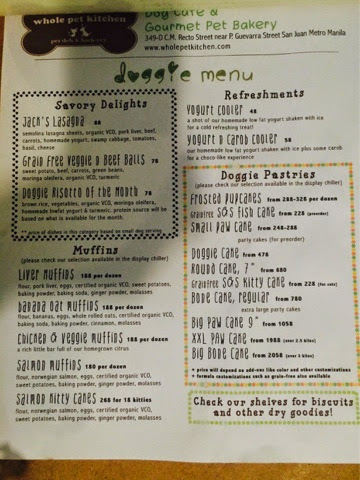 whole pet kitchen
pet deli & bakery
Dog Cafe &
Gourmet Pet Bakery
349-D C.M. Recto Street near P. Guevarra Street San Juan Metro Manila
www.wholepetkitchen.com
doggie menu
Savory Delights
Jack's Lasagna 68
semolina lasagna sheets, organic VCO, pork liver, beef,
carrots, homemade yogurt, swamp cabbage, tomatoes,
basil, cheese
Grain Free Veggie & Beef Balls 78
sweet potato, beef, carrots, green beans,
moringa oleifera, organic VCO, turmeric
Doggie Risotto of the Month 78
brown rice, vegetables, organic VCO, moringa oleifera,
homemade lowfat yogurt & turmeric. protein source will be
based on what is available for the month.
** price of dishes in this category based on small dog serving
Muffins
(please check our selection available in the display chiller)
Liver Muffins 188 per dozen
flour, pork liver, eggs, certified organic VCO, sweet potatoes,
baking powder, baking soda, ginger powder, molasses
Banana Oat Muffins 188 per dozen
flour, bananas, eggs, whole rolled oats, certified organic VCO,
baking soda, baking powder, cinnamon, molasses
Chicken & Veggie Muffins 188 per dozen
a rich-bite bar full of our homegrown citrus
Salmon Muffins 180 per dozen
flour, norwegian salmon, eggs, certified organic VCO,
sweet potatoes, baking powder, ginger powder, molasses
Salmon Kitty Canes 268 for 18 kitties
flour, norwegian salmon, eggs, certified organic VCO,
sweet potatoes, baking powder, ginger, molasses
Refreshments
Yogurt Cooler 48
a shot of our homemade low fat yogurt shaken with ice
for a cold refreshing treat!
Yogurt & Carob Cooler 58
our homemade low fat yogurt shaken with ice plus some carob
for a choco-like experience
Doggie Pastries
(please check our selection available in the display chiller)
Frosted Pupcakes from 288-328 per dozen
Grainfree S&S Fish Cake from 228 (preorder)
Small Paw Cake from 248-288
party cakes (for preorder)
Doggie Cake from 478
Round Cake, 7" from 680
Grainfree S&S Kitty Cake from 228 (for cats)
Bone Cake, regular from 780
extra large party cakes
Big Paw Cake 9" from 1058
XXL Paw Cake from 1988 (over 2.5 kilos)
Big Bone Cake from 2058 (over 2 kilos)
* price will depend on add-ons like color and other customizations
* formula customizations such as grain-free also available
Check our shelves for biscuits
and other dry goodies!